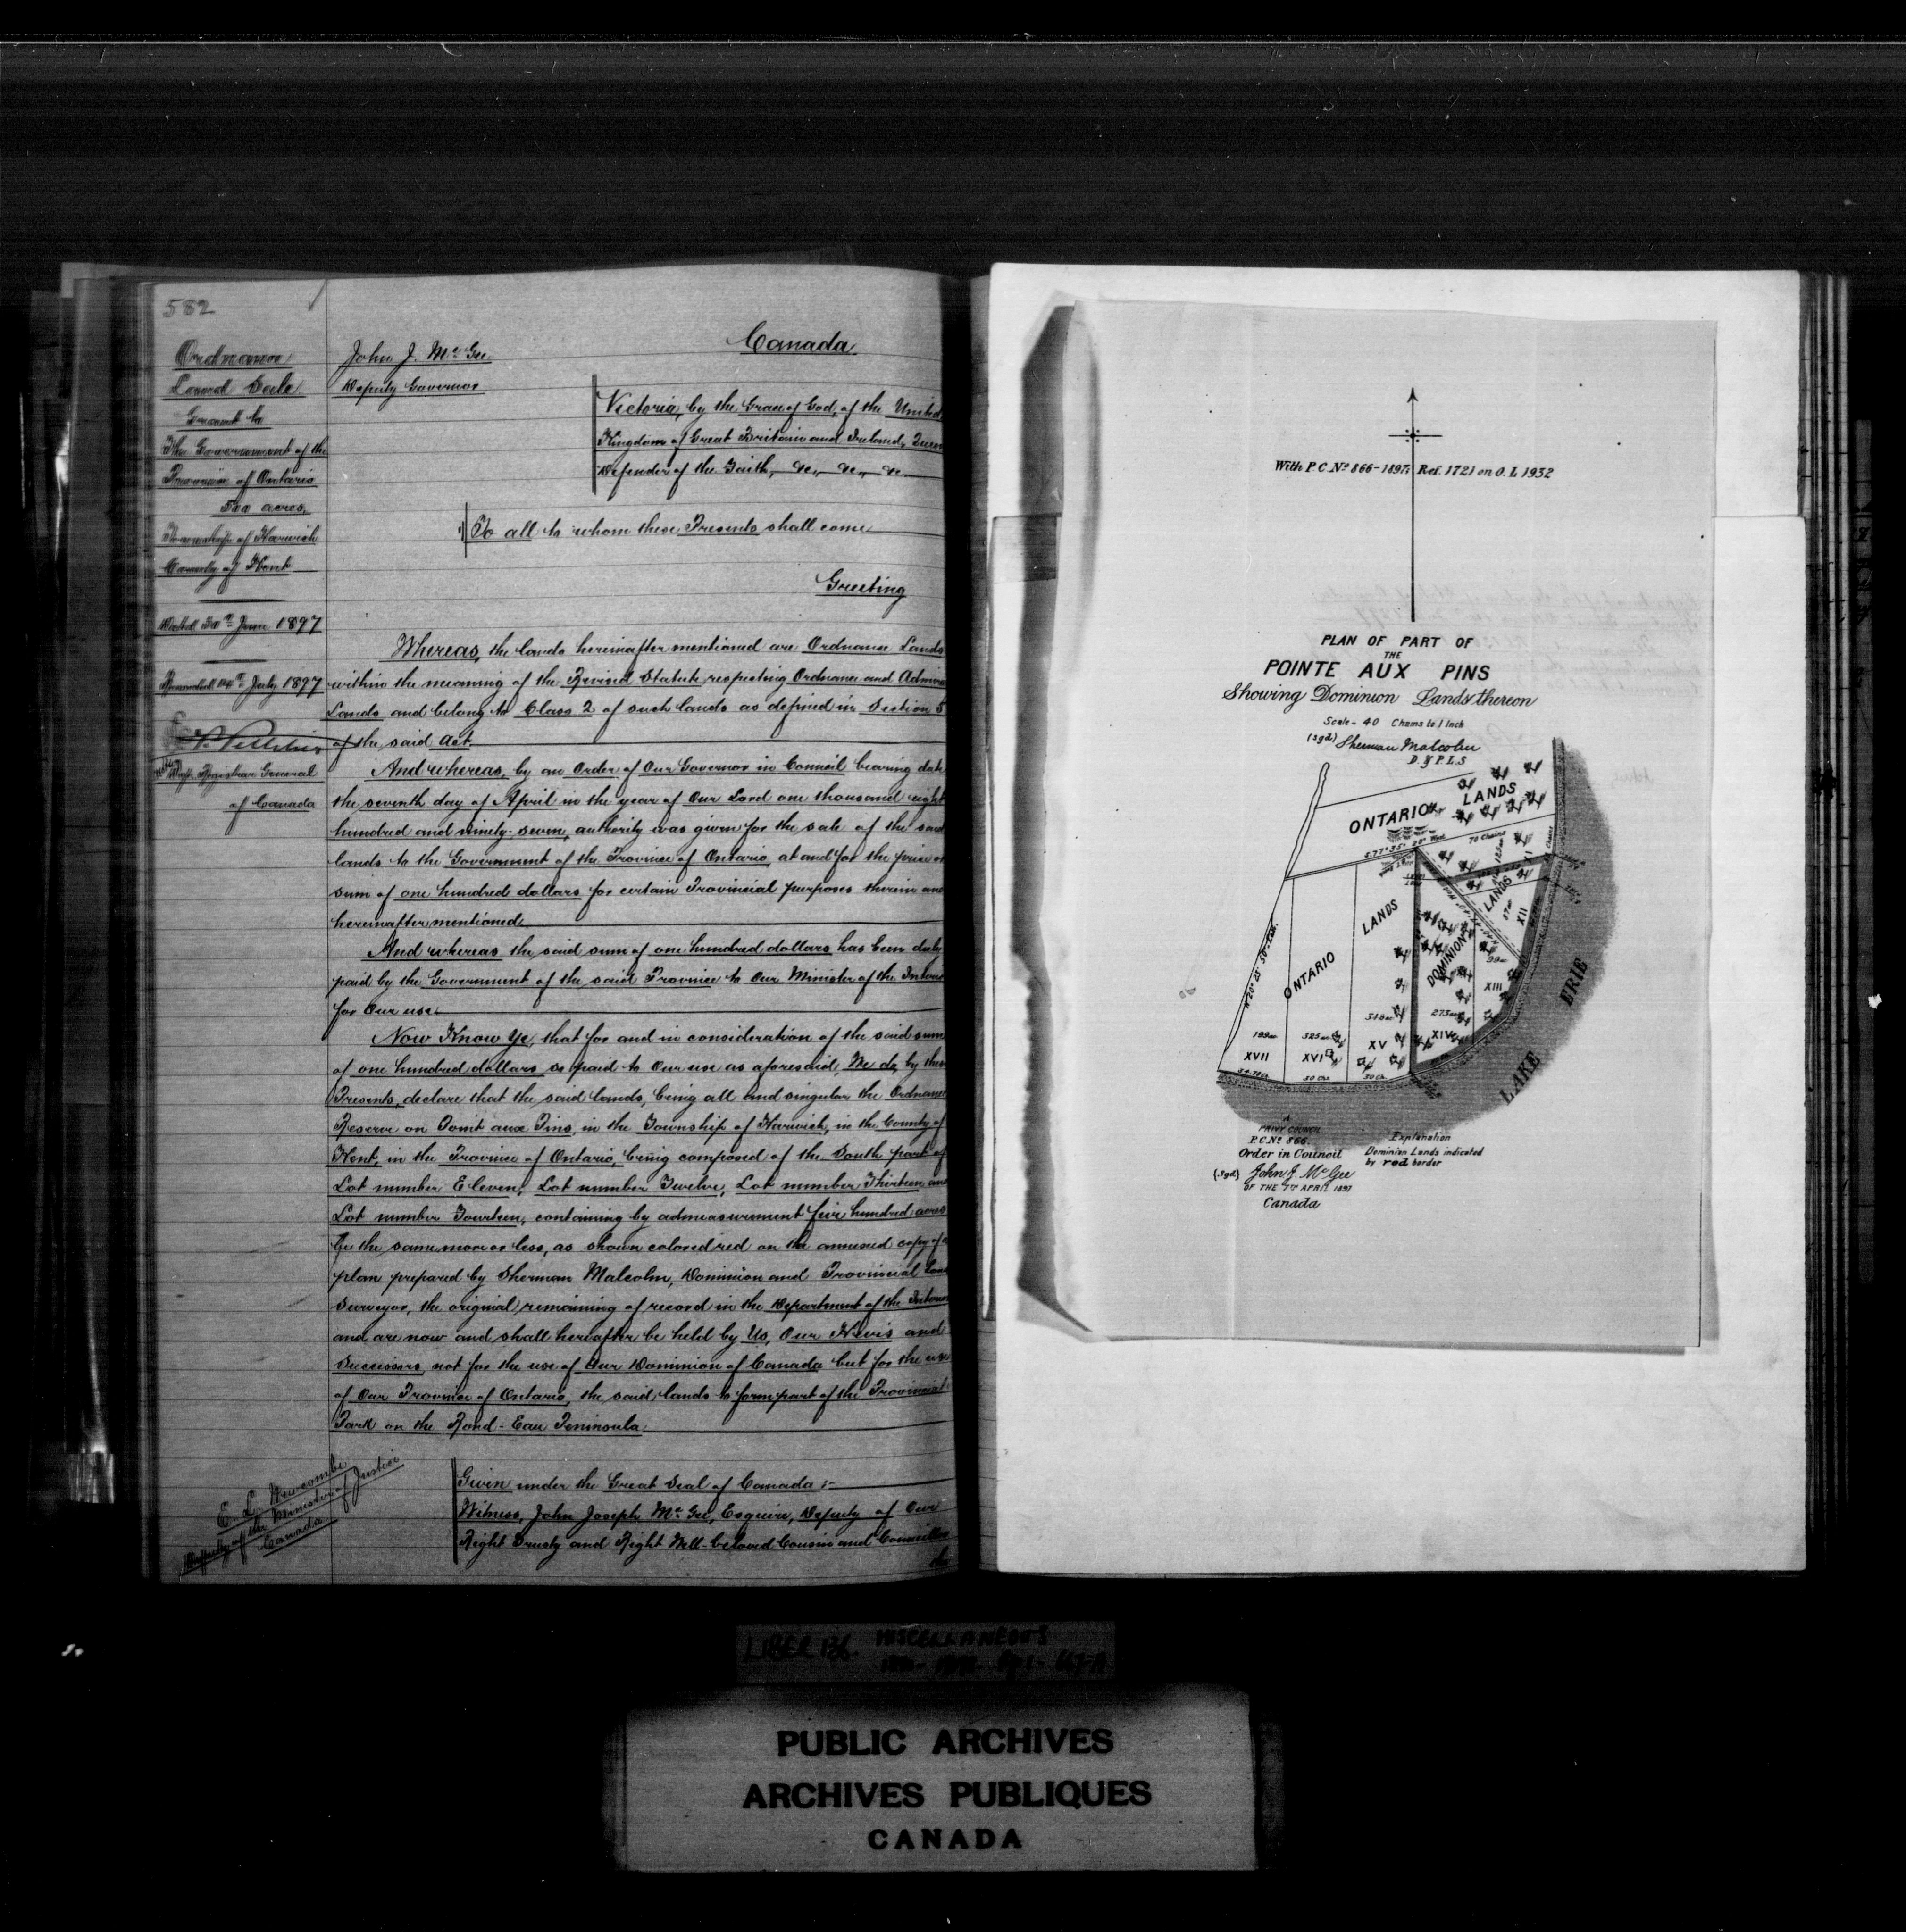 582
Ordnance
Land Sale
Grant to
The Government of the
Province of Ontario
500 acres
Township of Harwich
County of Kent
Dated 30th June 1897
Recorded 14th July 1897
Dept. Registrar General
of Canada
John J. McGee
Deputy Governor
Canada
Victoria, by the Grace of God, of the United
Kingdom of Great Britain and Ireland, Queen
Defender of the Faith, &c., &c., &c.
To all to whom these Presents shall come
Greeting
Whereas, the lands hereinafter mentioned are Ordnance Lands
within the meaning of the Revised Statute respecting Ordnance and Admira
Lands and belong to Class 2 of such lands as defined in Section 5
of the said Act.
And whereas, by an Order of Our Governor in Council bearing date
the seventh day of April in the year of Our Lord one thousand eight
hundred and ninety-seven, authority was given for the sale of the said
lands to the Government of the Province of Ontario, at and for the price or
sum of one hundred dollars for certain Provincial purposes therein and
hereinafter mentioned.
And whereas the said sum of one hundred dollars has been duly
paid by the Government of the said Province to Our Minister of the Interior
for Our use.
Now Know Ye, that for and in consideration of the said sum
of one hundred dollars so paid to Our use as aforesaid, We do, by these
Presents, declare that the said lands, being all and singular the Ordnance
Reserve on Point aux Pins, in the Township of Harwich, in the County of
Kent, in the Province of Ontario, being composed of the South part of
Lot number Eleven, Lot number Twelve, Lot number Thirteen and
Lot number Fourteen, containing by admeasurement five hundred acres
be the same more or less, as shown colored red on the annexed copy of a
plan prepared by Sherman Malcolm, Dominion and Provincial Land
Surveyor, the original remaining of record in the Department of the Interior
and are now and shall hereafter be held by Us, Our Heirs and
Successors not for the use of Our Dominion of Canada but for the use
of Our Province of Ontario, the said lands to form part of the Provincial
Park on the Rond-Eau Peninsula.
E. L. Newcombe
Deputy of the Minister of Justice
Canada
Given under the Great Seal of Canada :-
Witness, John Joseph McGee, Esquire, Deputy of Our
Right Trusty and Right Well-beloved Cousin and Councillor
the
With P.C. No 866-1897: Ref. 1721 on O.L 1932
PLAN OF PART OF
THE
POINTE AUX PINS
Showing Dominion Lands thereon
Scale - 40 Chains to 1 Inch
(Sgd) Sherman Malcolm
D. & P.L.S
ONTARIO LANDS
70 Chains
LANDS
XII
LANDS
ONTARIO
DOMINION
XIII
XIV
XV
XVI
XVII
50 Ch.
50 Ch.
LAKE ERIE
PRIVY COUNCIL
P.C. No 866.
Order in Council
(Sgd) John J. McGee
OF THE 7TH APRIL 1897
Canada
Explanation
Dominion Lands indicated
by red border
LIBER 136. MISCELLANEOUS
PUBLIC ARCHIVES
ARCHIVES PUBLIQUES
CANADA